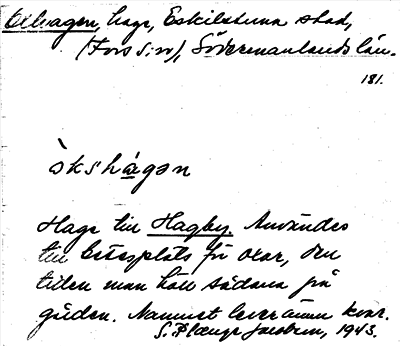 Oxhagen, hage, Eskilstuna stad,
(Fors s:n), Södermanlands län.
181.
òkshàgən
Hage till Hagby. Användes
till betesplats för oxar, den
tiden man höll sådana på
gården. Namnet lever ännu kvar.
S. Plænge Jacobson, 1943.